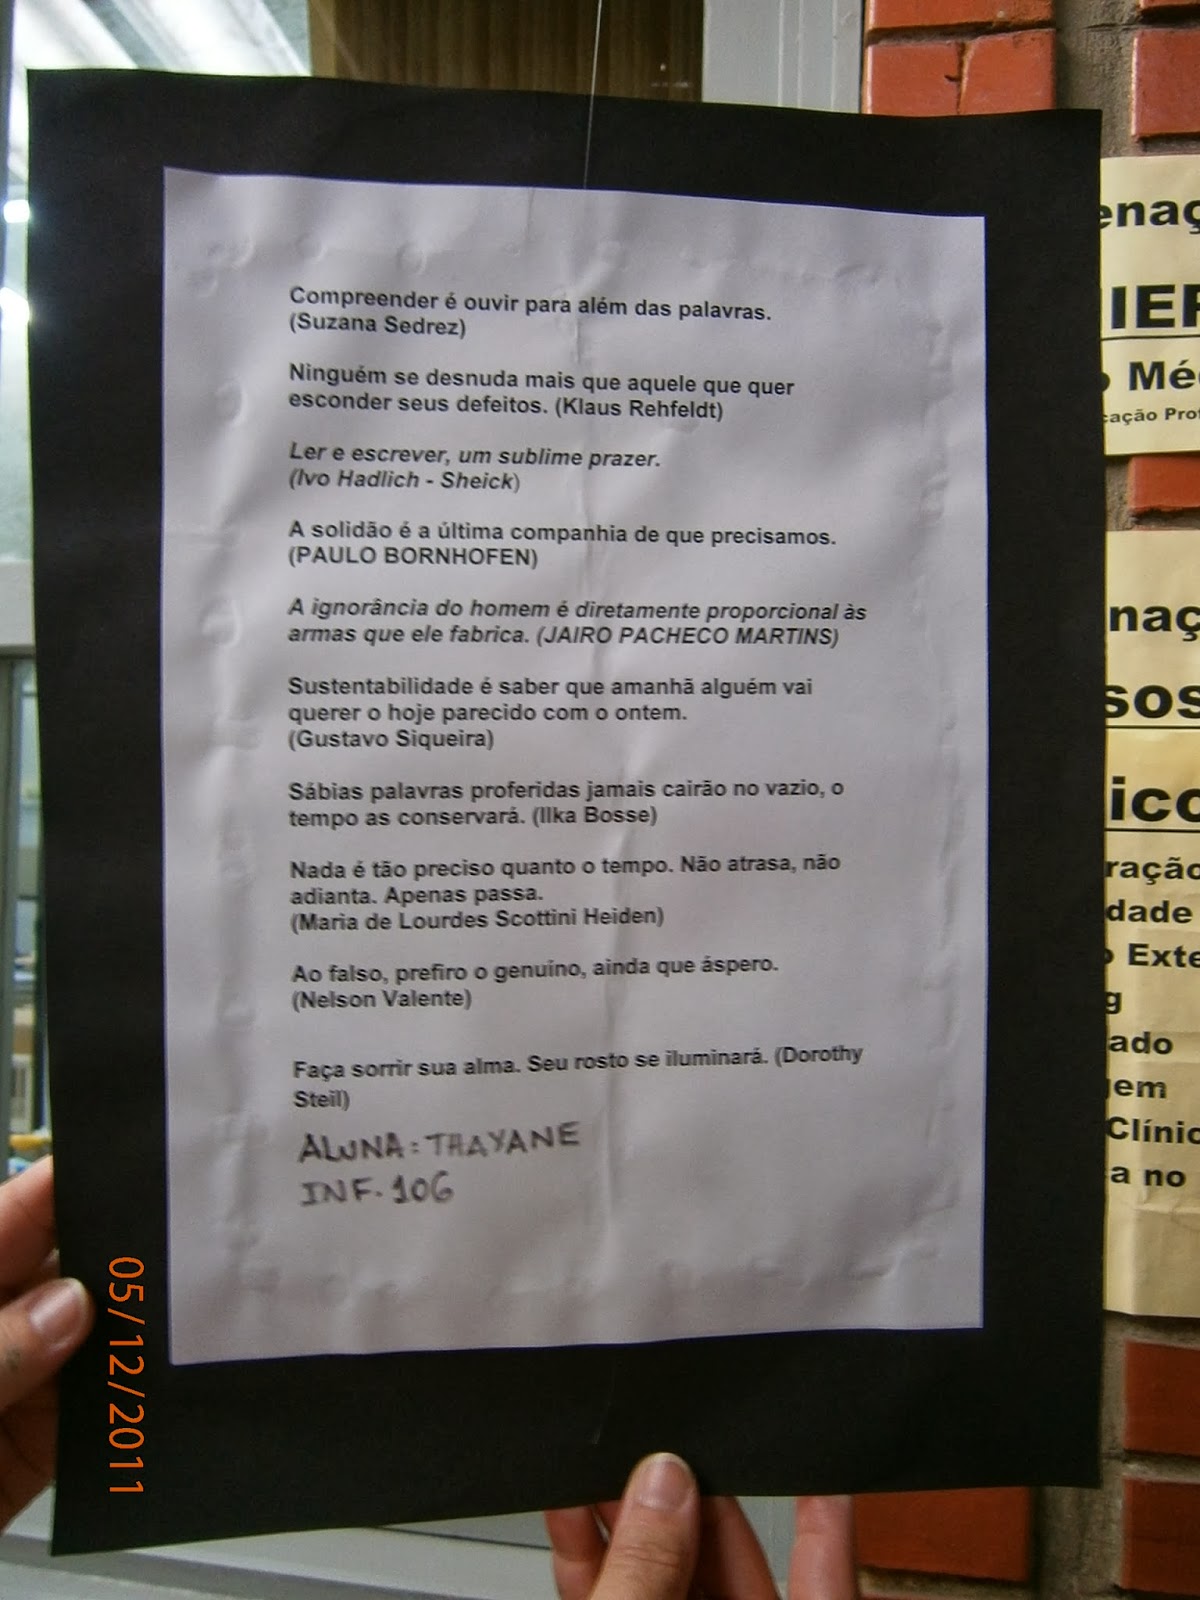 Compreender é ouvir para além das palavras.
(Suzana Sedrez)
Ninguém se desnuda mais que aquele que quer
esconder seus defeitos. (Klaus Rehfeldt)
Ler e escrever, um sublime prazer.
(Ivo Hadlich - Sheick)
A solidão é a última companhia de que precisamos.
(PAULO BORNHOFEN)
A ignorância do homem é diretamente proporcional às
armas que ele fabrica. (JAIRO PACHECO MARTINS)
Sustentabilidade é saber que amanhã alguém vai
querer o hoje parecido com o ontem.
(Gustavo Siqueira)
Sábias palavras proferidas jamais cairão no vazio, o
tempo as conservará. (Ilka Bosse)
Nada é tão preciso quanto o tempo. Não atrasa, não
adianta. Apenas passa.
(Maria de Lourdes Scottini Heiden)
Ao falso, prefiro o genuíno, ainda que áspero.
(Nelson Valente)
Faça sorrir sua alma. Seu rosto se iluminará. (Dorothy
Steil)
ALUNA: THAYANE
INF. 106
05/12/2011
enaç
IER
Mé
cação Prof
naç
sos
ico
ração
dade
Exte
g
ado
gem
Clínic
a no